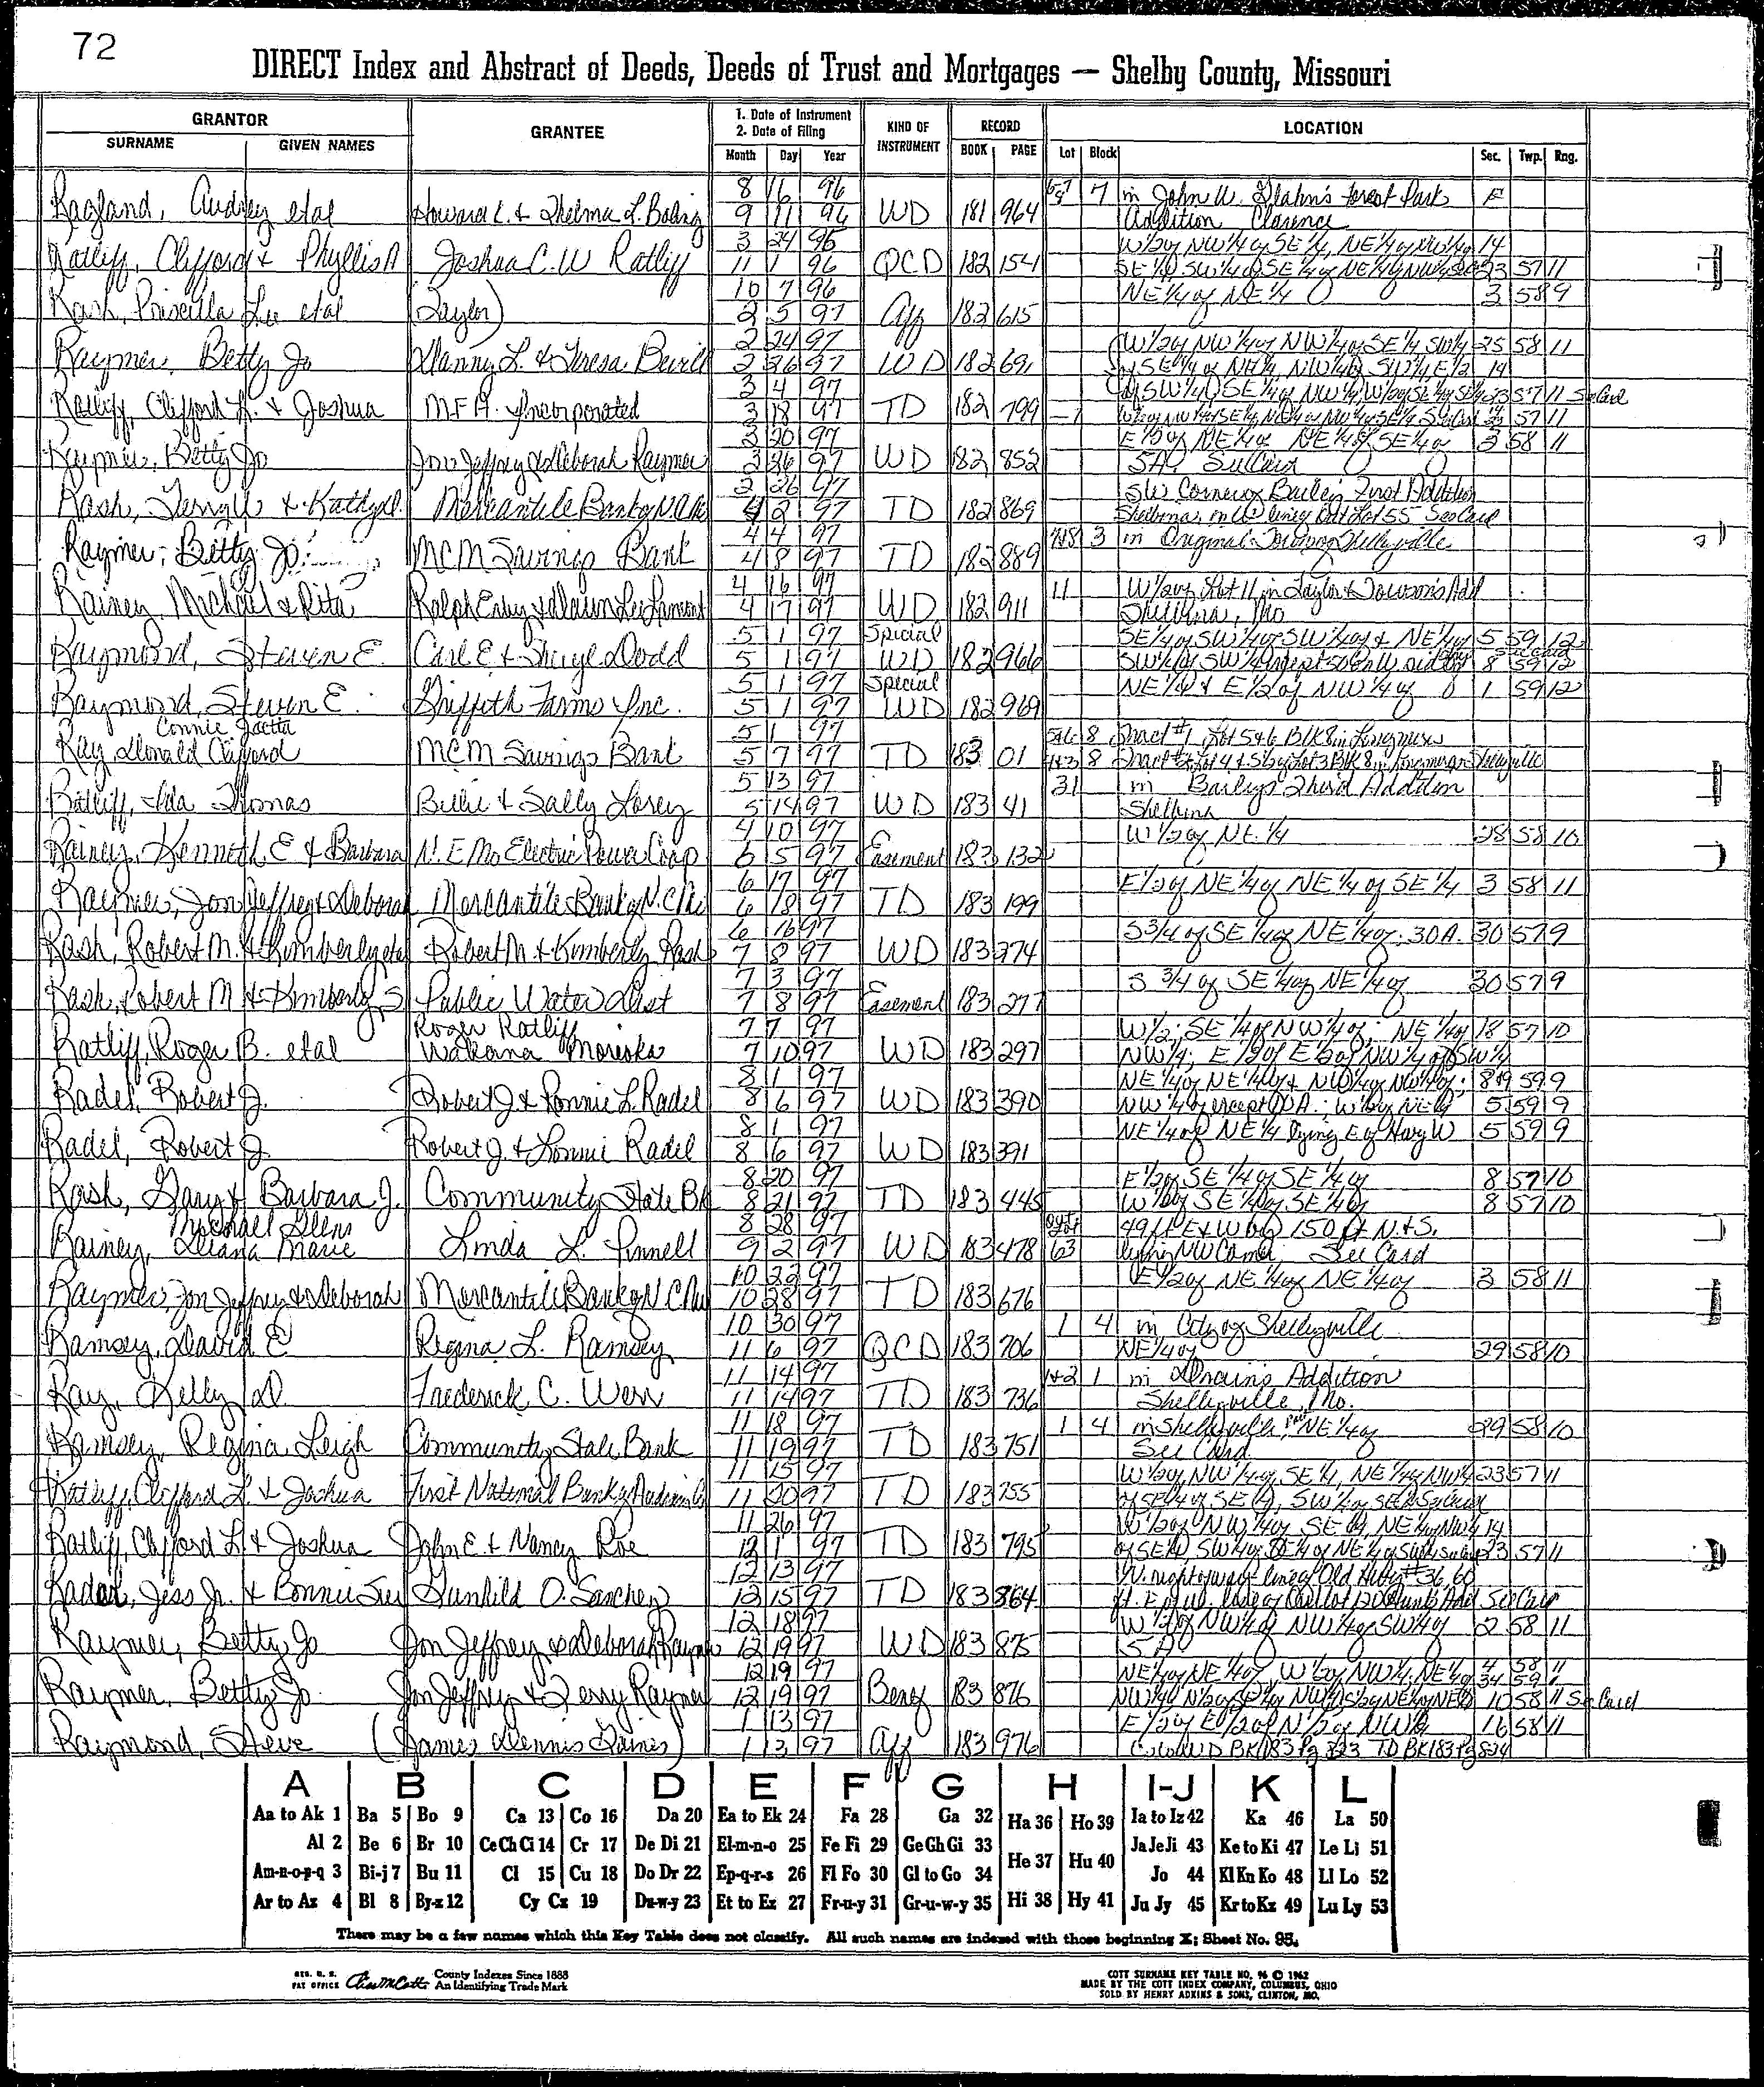 72
DIRECT Index and Abstract of Deeds, Deeds of Trust and Mortgages — Shelby County, Missouri
GRANTOR GRANTEE 1. Date of Instrument 2. Date of Filing KIND OF INSTRUMENT RECORD LOCATION
SURNAME GIVEN NAMES Month Day Year BOOK PAGE Lot Block Sec. Twp. Rng.
8 16 96 7 in John W. Forest Park
Ragland, Audrey etal Howard L. & Thelma L. 9 11 96 WD 181 964 Addition Clarence
3 24 96 W 1/2 of NW 1/4 of SE 1/4, NE 1/4 of NW 1/4 of 14
Ratliff, Clifford & Phyllis A Joshua C. W Ratliff 11 1 96 QCD 182 154 23 57 11
10 7 96 NE 1/4 of NE 1/4 3 58 9
Rash, Priscilla Lu etal (Taylor) 2 5 97 Aff 182 615
2 24 97 W 1/2 of NW 1/4 of NW 1/4 of SE 1/4 SW 1/4 35 58 11
Raymer, Betty Jo Danny L. & Teresa 2 26 97 WD 182 691 of SE 1/4 of NE 1/4, NW 1/4 of SW 1/4, E 1/2 14
3 4 97 of SW 1/4 of SE 1/4 of NW 1/4, W 1/2 of SE 1/4 of 23 57 11 See Card
Ratliff, Clifford L. & Joshua M.F.A. Incorporated 3 18 97 TD 182 799 57 11
3 20 97 E 1/2 of NE 1/4 of NE 1/4 of SE 1/4 of 3 58 11
Raymer, Betty Jo Jon Jeffrey & Deborah Raymer 3 26 97 WD 182 852 5A. See Card
2 26 97 SW Corner of Bailey's First Addition
Rash, & Kathy Mercantile Bank of N.C. Mo 4 2 97 TD 182 869 Shelbina, Lot 55 See Card
4 4 97 7&8 3 in Original Town of Shelbyville
Raymer, Betty Jo MCM Savings Bank 4 8 97 TD 182 889
4 16 97 11 W 1/2 of Lot 11 in Taylor & Towson's Add
Rainey, Michael & Rita Ralph & Dawn 4 17 97 WD 182 911 Shelbina, Mo
5 1 97 Special SE 1/4 of SW 1/4 of SW 1/4 of & NE 1/4 of 5 59 12
Raymond, Steven E. Carl E & Sheryl Dodd 5 1 97 WD 182 966 SW 1/4 of SW 1/4 8 59 12
5 1 97 Special NE 1/4 & E 1/2 of NW 1/4 of 1 59 12
Raymond, Steven E. Griffith Farms Inc. 5 1 97 WD 182 969
Connie 5 1 97 5&6 8 Tract #1 Lot 5&6 Blk 8 in
Ray, Donald Clifford MCM Savings Bank 5 7 97 TD 183 01 8 Shelbyville
5 13 97 31 in Bailey's Third Addition
Ratliff, Ida Thomas Billie & Sally Losey 5 14 97 WD 183 41 Shelbina
4 10 97 W 1/2 of NE 1/4 28 58 10
Rainey, Kenneth E & Barbara N. E Mo Electric Power Coop 6 5 97 Easement 183 132
6 17 97 E 1/2 of NE 1/4 of NE 1/4 of SE 1/4 3 58 11
Raymer, Jon Jeffrey & Deborah Mercantile Bank of N. C Mo 6 18 97 TD 183 199
6 16 97 S 3/4 of SE 1/4 of NE 1/4 of: 30 A. 30 57 9
Rash, Robert M. & Kimberly etal Robert M. & Kimberly Rash 7 8 97 WD 183 274
7 3 97 S 3/4 of SE 1/4 of NE 1/4 of 30 57 9
Rash, Robert M & Kimberly S Public Water Dist 7 8 97 Easement 183 277
Roger Ratliff 7 7 97 W 1/2; SE 1/4 of NW 1/4 of; NE 1/4 of 18 57 10
Ratliff, Roger B. etal Wakana Morioka 7 10 97 WD 183 297 NW 1/4; E 1/2 of E 1/2 of NW 1/4 of SW 1/4
8 1 97 NE 1/4 of NE 1/4 of & NW 1/4 of NW 1/4 of; 8&9 59 9
Radel, Robert J. Robert J & Lonnie L. Radel 8 6 97 WD 183 390 NW 1/4 of except 5 59 9
8 1 97 NE 1/4 of NE 1/4 lying E of Hwy W 5 59 9
Radel, Robert J. Robert J. & Lonnie Radel 8 6 97 WD 183 391
8 20 97 E 1/2 of SE 1/4 of SE 1/4 of 8 57 10
Rash, Gary & Barbara J. Community State Bk 8 21 97 TD 183 445 W 1/2 of SE 1/4 of SE 1/4 of 8 57 10
Michael Glenn 8 28 97 49 ft E & W by 150 ft N. & S.
Rainey, Deana Marie Linda L. Pinnell 9 2 97 WD 183 478 63 lying NW Corner See Card
10 22 97 E 1/2 of NE 1/4 of NE 1/4 of 3 58 11
Raymer, Jon Jeffrey & Deborah Mercantile Bank of N C Mo 10 28 97 TD 183 676
10 30 97 1 4 in City of Shelbyville
Ramsey, David E Regina L. Ramsey 11 6 97 QCD 183 706 NE 1/4 of 29 58 10
11 14 97 1&2 1 in Addition
Ray, Kelly D. Frederick C. Werr 11 14 97 TD 183 736 Shelbyville, Mo.
11 18 97 1 4 in Shelbyville; NE 1/4 of 29 58 10
Ramsey, Regina Leigh Community State Bank 11 19 97 TD 183 751 See Card
11 15 97 W 1/2 of NW 1/4 of SE 1/4, NE 1/4 of NW 1/4 23 57 11
Ratliff, Clifford L & Joshua First National Bank of 11 20 97 TD 183 755 of SE 1/4 of SE 1/4, SW 1/4 of See Card
11 26 97 W 1/2 of NW 1/4 of SE 1/4, NE 1/4 of NW 1/4 14
Ratliff, Clifford L & Joshua John E. & Nancy Roe 12 1 97 TD 183 795 of SE 1/4, SW 1/4 of SE 1/4 of NE 1/4 of 23 57 11
12 13 97 W. right of way line of Old Hwy #36, 60
Jess Jr. & Bonnie Sue Gunhild O. Sanchez 12 15 97 TD 183 864 ft. E of W. line of See Card
12 18 97 W 1/2 of NW 1/4 of NW 1/4 of SW 1/4 of 2 58 11
Raymer, Betty Jo Jon Jeffrey & Deborah Raymer 12 19 97 WD 183 875 5 A
12 19 97 NE 1/4 of NE 1/4 of, W 1/2 of NW 1/4, NE 1/4 of 4 58 11
Raymer, Betty Jo Jon Jeffrey & Terry Raymer 12 19 97 Benef 183 876 10 58 11 See Card
1 13 97 E 1/2 of E 1/2 of N 1/2 of NW 1/4 16 58 11
Raymond, Steve (James Dennis Raines) 1 13 97 Aff 183 976 WD BK 183 Pg 823 TD BK 183 Pg 824
A B C D E F G H I-J K L
Aa to Ak 1 Ba 5 Bo 9 Ca 13 Co 16 Da 20 Ea to Ek 24 Fa 28 Ga 32 Ha 36 Ho 39 Ia to Iz 42 Ka 46 La 50
Al 2 Be 6 Br 10 Ce Ch Ci 14 Cr 17 De Di 21 El-m-n-o 25 Fe Fi 29 Ge Gh Gi 33 He 37 Hu 40 Ja Je Ji 43 Ke to Ki 47 Le Li 51
Am-n-o-p-q 3 Bi-j 7 Bu 11 Cl 15 Cu 18 Do Dr 22 Ep-q-r-s 26 Fl Fo 30 Gl to Go 34 Jo 44 Kl Kn Ko 48 Ll Lo 52
Ar to Az 4 Bl 8 By-z 12 Cy Cz 19 Du-w-y 23 Et to Ez 27 Fr-u-y 31 Gr-u-w-y 35 Hi 38 Hy 41 Ju Jy 45 Kr to Kz 49 Lu Ly 53
There may be a few names which this Key Table does not classify. All such names are indexed with those beginning X; Sheet No. 95.
REG. U. S. PAT OFFICE County Indexes Since 1888 An Identifying Trade Mark
COTT SURNAME KEY TABLE NO. 96 © 1962
MADE BY THE COTT INDEX COMPANY, COLUMBUS, OHIO
SOLD BY HENRY ADKINS & SONS, CLINTON, MO.